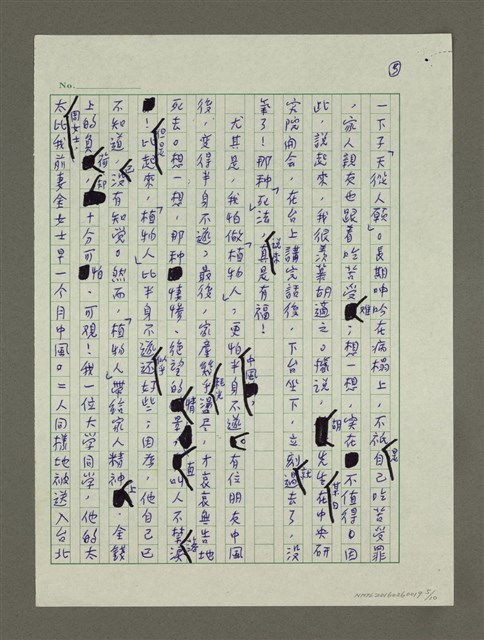 No.
⑤
一下子「天從人願」。長期呻吟在病榻上,不祇是自己吃苦受罪
,家人親友也跟着吃苦受難;想一想,實在不值得。因
此,說起來,我很羨慕胡適之。據說,胡先生某日在中央研
究院開會,在台上講完話後,下台坐下,立刻就過去了,沒
氣了!那种死法,說來真是有福!
尤其是,我怕做「植物人」;更怕中風,半身不遂。有位朋友中風
後,變得半身不遂;最後,家產幾乎盡,才哀哀無告地
死去。想一想,那种悽慘、絕望的情景,真叫人不禁淚
!但是比起來,「植物人」比半身不遂似乎還好些;因為,他自己已
不知道,已沒有知覺。然而,「植物人」帶給家人精神上、金錢
上的負荷,卻十分可怕、可觀!我一位大学同学,他的太
太周女士,比我前妻金女士早一個月中風。二人同樣地被送入台北